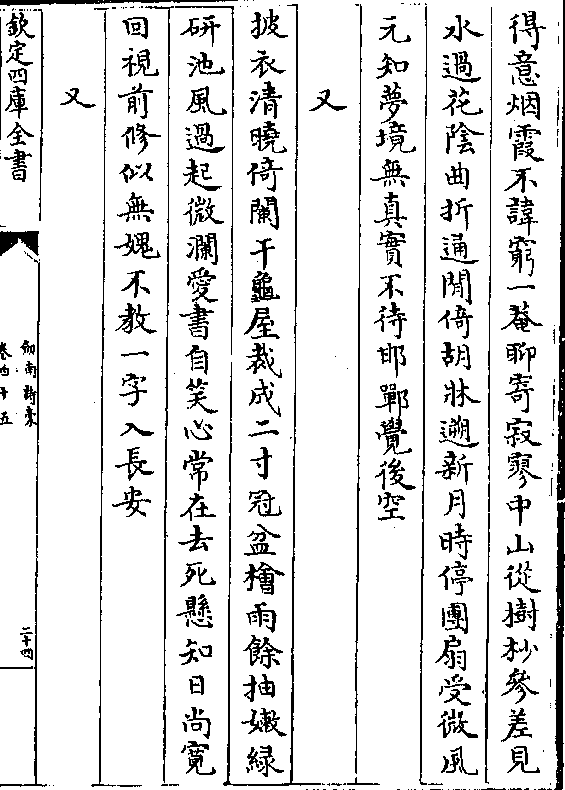 得意烟霞不諱窮一菴聊寄寂寥中山從樹杪參差見
水過花陰曲折通閒倚胡牀邀新月時停團扇受微風
元知夢境無真實不待邯鄲覺後空
又
披衣清曉倚闌干龜屋裁成二寸冠盆檜雨餘抽嫩緑
研池風過起微瀾愛書自笑心常在去死懸知日尚寛
回視前修似無媿不教一字入長安
又
欽定四庫全書
劒南詩稾
卷四十五
二十四